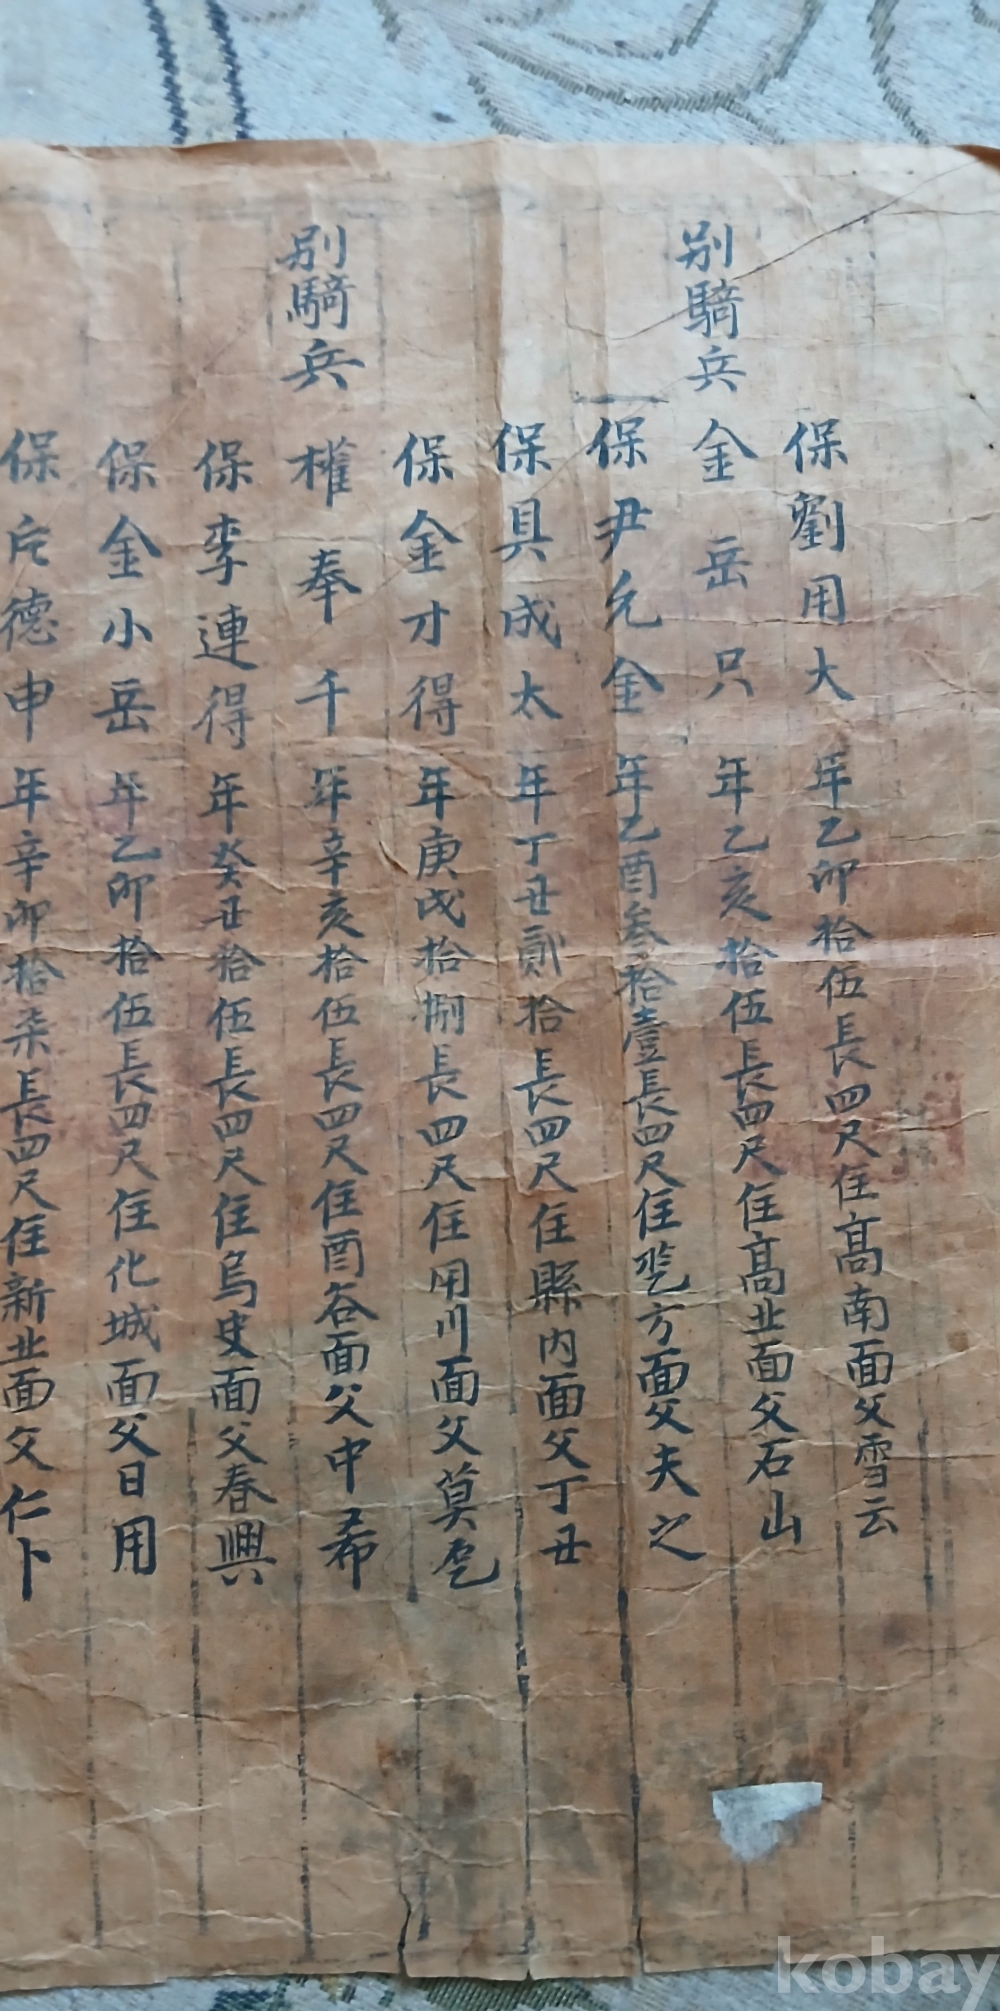 保劉用大 年乙卯拾伍長四尺住高南面父雪云
別騎兵 金岳只 年乙亥拾伍長四尺住高北面父石山
保尹允金 年乙酉叁拾壹長四尺住 方面父夫之
保具成太 年丁丑貳拾長四尺住縣內面父丁丑
保金才得 年庚戌拾捌長四尺住用川面父莫
別騎兵 權奉千 年辛亥拾伍長四尺住酉谷面父中希
保李連得 年癸丑拾伍長四尺住烏史面父春興
保金小岳 年乙卯拾伍長四尺住化城面父日用
保 德申 年辛卯拾柒長四尺住新北面父仁卜
kobay